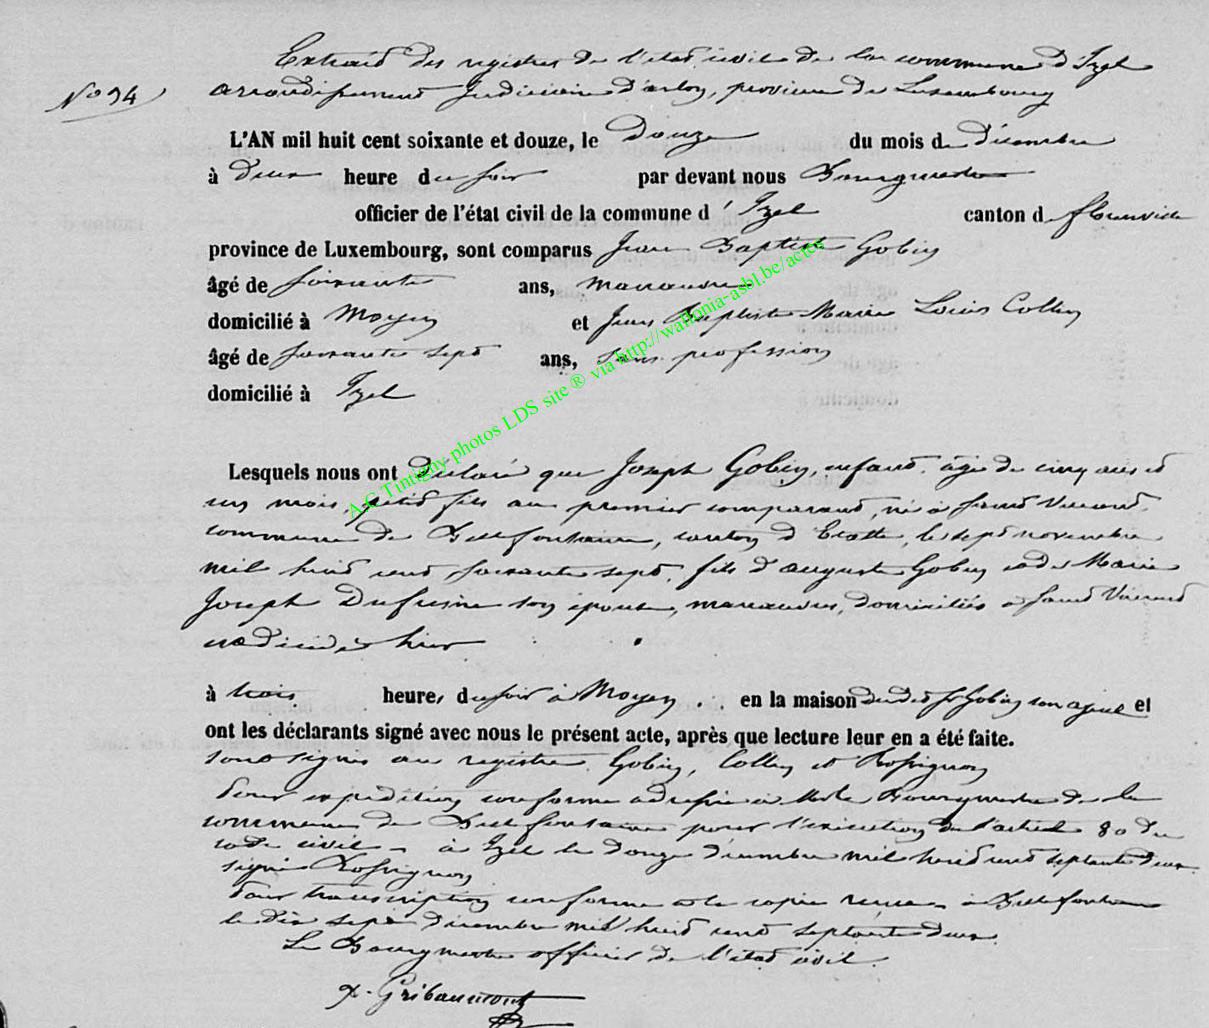 Extrait des registres de l'état civil de la commune d'Izel
No 34
arrondissement Judiciaire d'arlon, province de Luxembourg
L'AN mil huit cent soixante et douze, le Douze du mois de Décembre
à deux heure du soir par devant nous Bourgmestre
officier de l'état civil de la commune d'Izel canton de florenville
province de Luxembourg, sont comparus Jean Baptiste Gobin
âgé de soixante ans, manœuvre
domicilié à Moyen et Jean Baptiste Marie Louis Collin
âgé de soixante sept ans, sans profession
domicilié à Izel
Lesquels nous ont déclaré que Joseph Gobin, enfant, âgé de cinq ans et
un mois, petit fils au premier comparant, né à Saint Vincent
commune de Bellefontaine, canton d'Etalle, le sept novembre
mil huit cent soixante sept, fils d'auguste Gobin et de Marie
Joseph Dufresne son épouse, manœuvres, domiciliés à Saint Vincent
est décédé hier
à trois heures du soir à Moyen en la maison dudit Gobin son ayeul et
ont les déclarants signé avec nous le présent acte, après que lecture leur en a été faite.
sont signés au registre Gobin, Collin et Rossignon
Pour expédition conforme adressée à Bourgmestre de la
commune de Bellefontaine pour l'exécution de l'article 80 du
code civil - à Izel le douze décembre mil huit cent septante deux
signé Rossignon
Pour transcription conforme à la copie reçue à Bellefontaine
le dix sept décembre mil huit cent septante deux
Le Bourgmestre officier de l'état civil
Gribaumont
A-C Tintigny photos LDS site ® via http://wallonia-asbl.be/actes